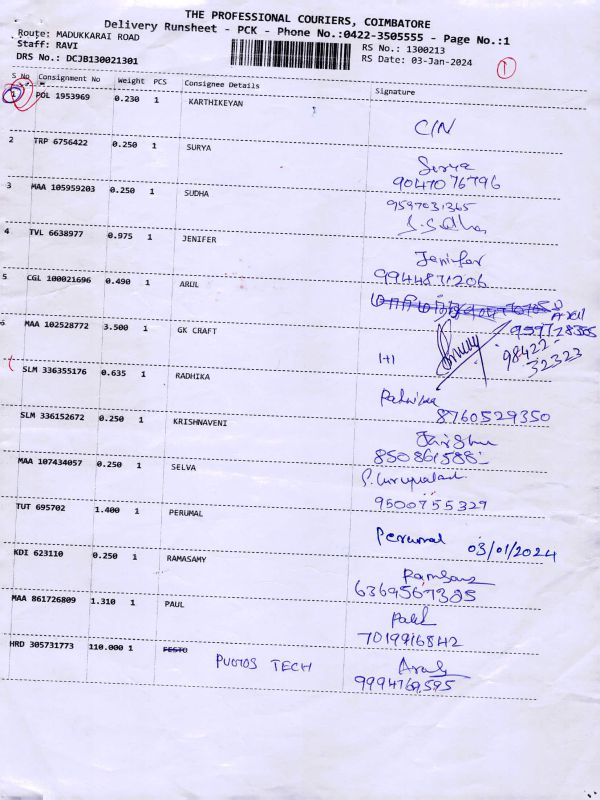 THE PROFESSIONAL COURIERS, COIMBATORE
Delivery Runsheet - PCK - Phone No.:0422-3505555 - Page No.:1
Route: MADUKKARAI ROAD
Staff: RAVI
RS No.: 1300213
DRS No.: DCJB130021301
RS Date: 03-Jan-2024
1
S No Consignment No Weight PCS Consignee Details Signature
1 POL 1953969 0.230 1 KARTHIKEYAN
C/N
2 TRP 6756422 0.250 1 SURYA
Surya
9047076796
3 MAA 105959203 0.250 1 SUDHA
9597031365
4 TVL 6638977 0.975 1 JENIFER
Jenifer
9944871206
5 CGL 100021696 0.490 1 ARUL
Arul
6 MAA 102528772 3.500 1 GK CRAFT
1+1
98422
32323
SLM 336355176 0.635 1 RADHIKA
Radhika
8760529350
SLM 336152672 0.250 1 KRISHNAVENI
MAA 107434057 0.250 1 SELVA
9500755329
TUT 695702 1.400 1 PERUMAL
Perumal 03/01/2024
KDI 623110 0.250 1 RAMASAMY
6369567385
MAA 861726809 1.310 1 PAUL
Paul
7019916842
HRD 305731773 110.000 1 FESTO
PUOTOS TECH
9994769595